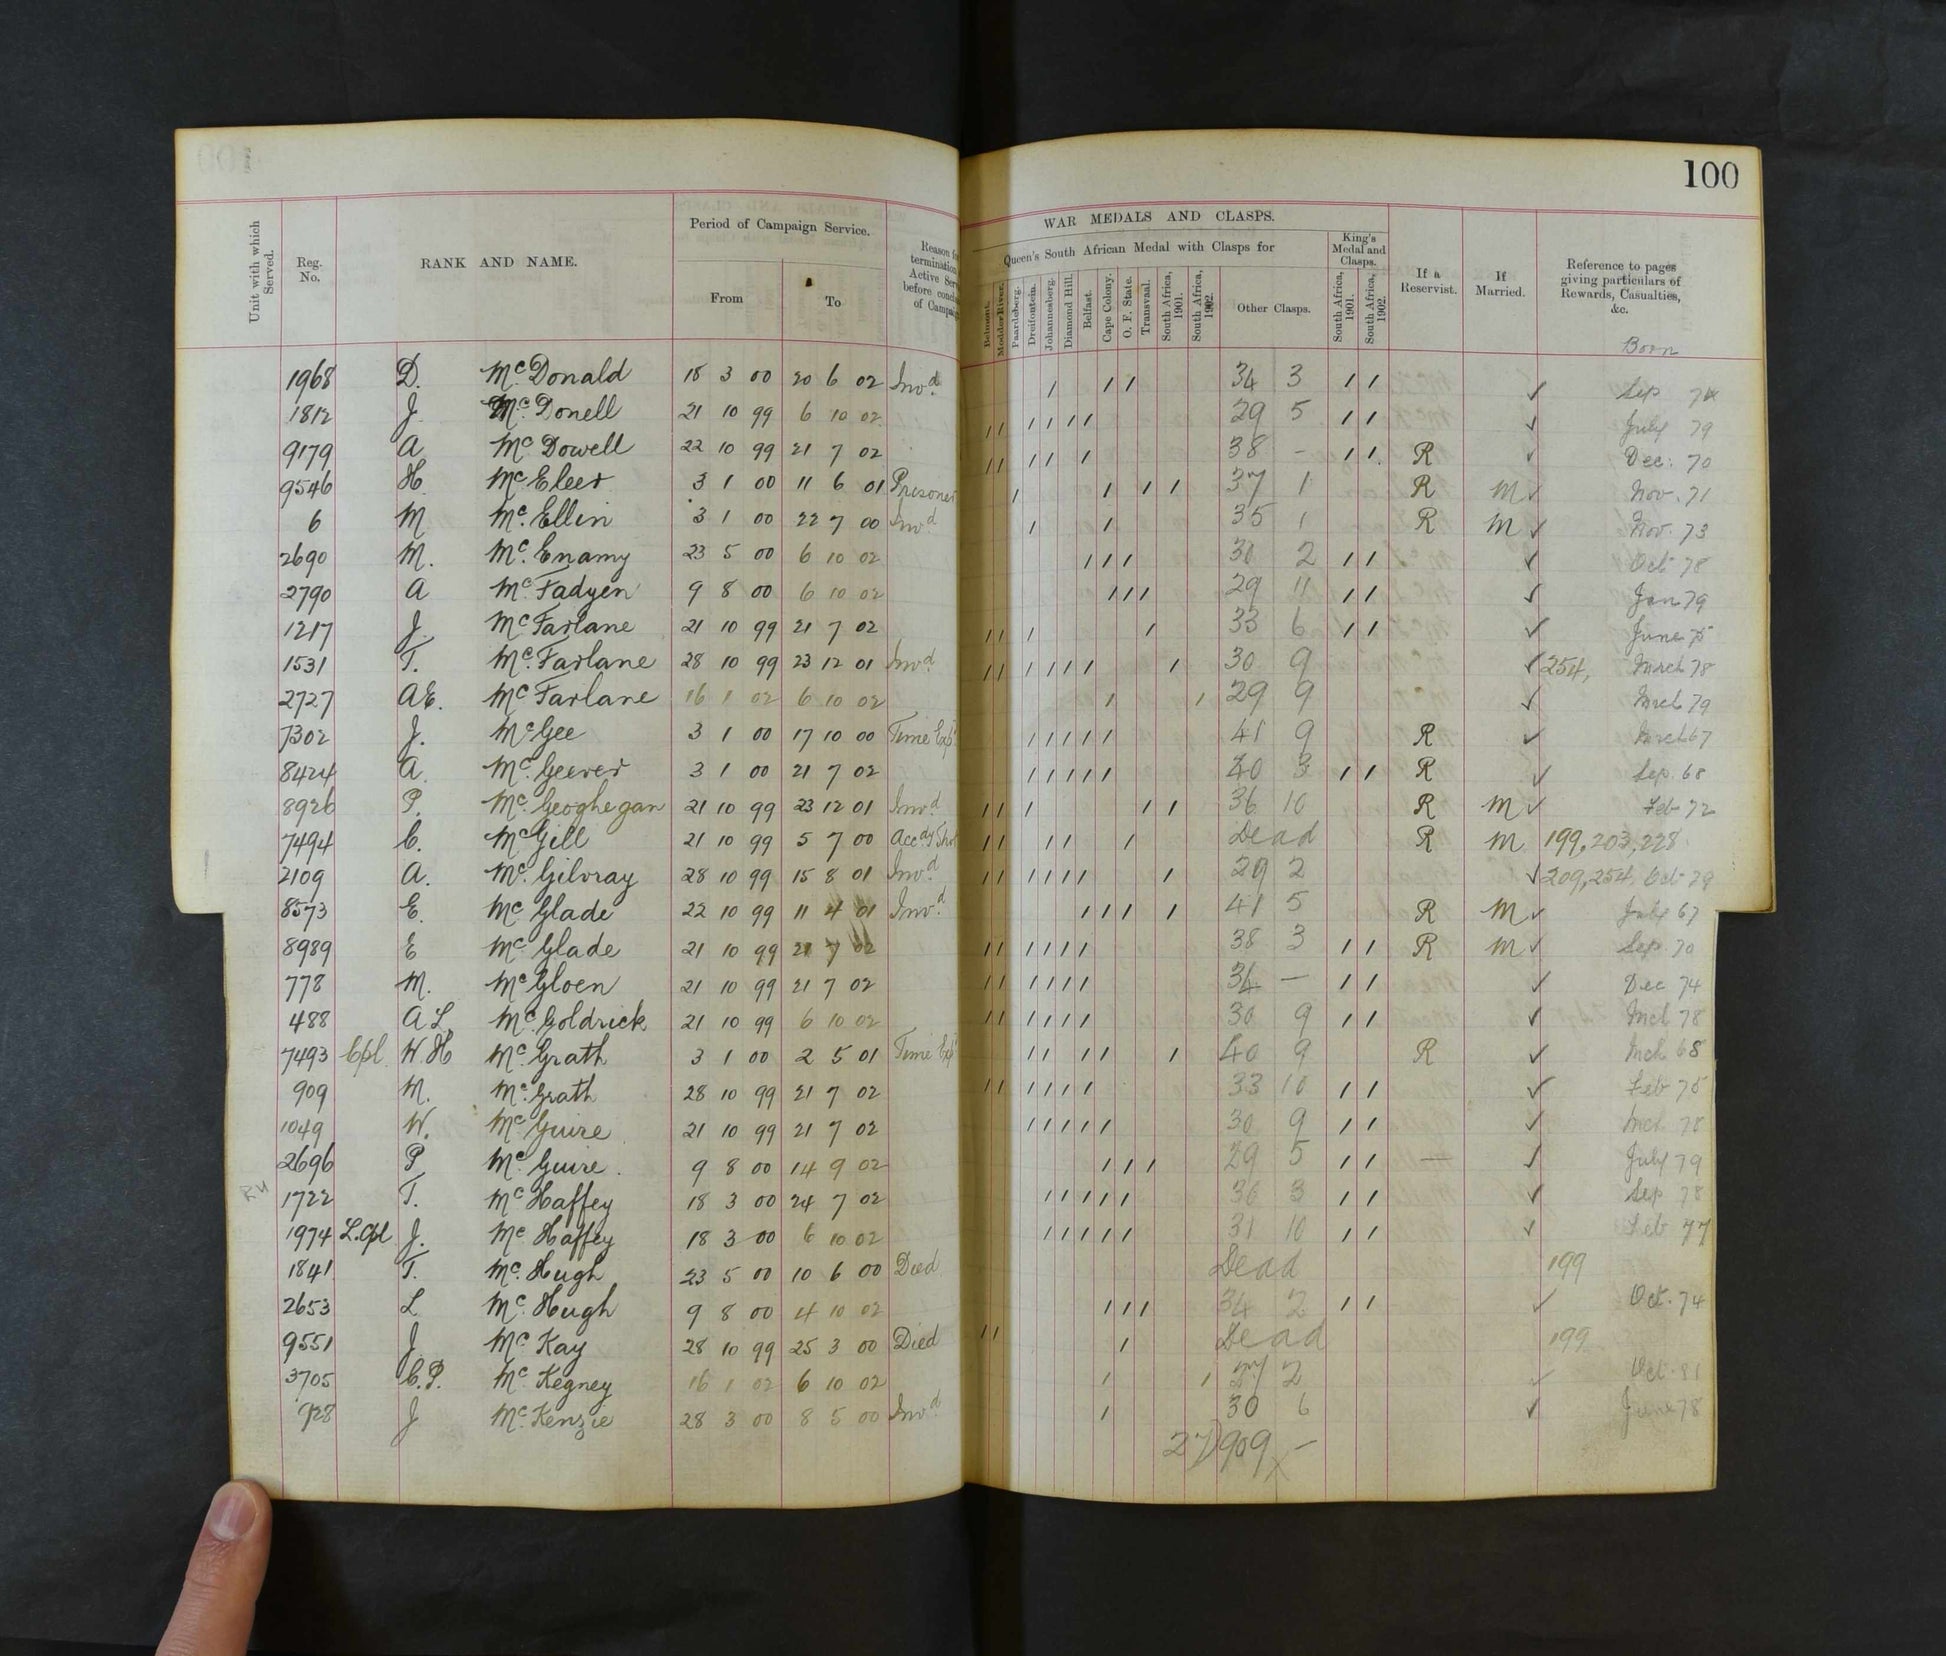 100
WAR MEDALS AND CLASPS.
Period of Campaign Service.
Queen's South African Medal with Clasps for
King's Medal and Clasps.
Unit with which Served.
Reg. No.
RANK AND NAME.
From
To
Reason
termination
Active
before
of
Belmont.
Modder River.
Paardeberg.
Dreifontein.
Johannesberg.
Diamond Hill.
Belfast.
Cape Colony.
O. F. State.
Transvaal.
South Africa, 1901.
South Africa, 1902.
Other Clasps.
South Africa, 1901.
South Africa, 1902.
If a Reservist.
If Married.
Reference to pages giving particulars of Rewards, Casualties, &c.
Born
1968 D. McDonald 18 3 00 20 6 02 Invd. / / / 34 3 / / ✓ Sep 74
1812 J. McDonell 21 10 99 6 10 02 / / / / / / 29 5 / / ✓ July 79
9179 A McDowell 22 10 99 21 7 02 / / / / / 38 - / / R ✓ Dec. 70
9546 H. McEleer 3 1 00 11 6 01 Prisoner / / / / 37 1 R M ✓ Nov. 71
6 M McEllin 3 1 00 22 7 00 Invd. / / 35 1 R M ✓ Nov. 73
2690 M. McEnamy 23 5 00 6 10 02 / / / 2 / / ✓ Oct 78
2790 A McFadyen 9 8 00 6 10 02 / / / 29 11 / / ✓ Jan 79
1217 J. McFarlane 21 10 99 21 7 02 / / / / 33 6 / / ✓ June 75
1531 T. McFarlane 28 10 99 23 12 01 Invd. / / / / / / / 30 9 ✓ 254, March 78
2727 A E. McFarlane 16 1 02 6 10 02 / / 29 9 ✓ Mrch 79
7302 J. McGee 3 1 00 17 10 00 Time Exp / / / / / 41 9 R ✓ Mrch 67
8424 A. McGeever 3 1 00 21 7 02 / / / / / 40 3 / / R ✓ Sep. 68
8926 P. McGeoghegan 21 10 99 23 12 01 Invd. / / / / / 36 10 R M ✓ Feb 72
7494 C. McGill 21 10 99 5 7 00 Accdy Shot / / / / / Dead R M 199, 203, 228
2109 A. McGilvray 28 10 99 15 8 01 Invd. / / / / / / / 29 2 ✓ 209, 254, Oct 79
8573 E. McGlade 22 10 99 11 4 01 Invd. / / / / 41 5 R M ✓ July 67
8989 E McGlade 21 10 99 21 7 02 / / / / / / 38 3 / / R M ✓ Sep. 70
778 M. McGloen 21 10 99 21 7 02 / / / / / / 34 - / / ✓ Dec 74
488 A L. McGoldrick 21 10 99 6 10 02 / / / / / / 30 9 / / ✓ Mch 78
7493 Cpl. W. H McGrath 3 1 00 2 5 01 Time Exp / / / / / 40 9 R ✓ Mch 68
909 M. McGrath 28 10 99 21 7 02 / / / / / / 33 10 / / ✓ Feb 75
1049 W. McGuire 21 10 99 21 7 02 / / / / / 30 9 / / ✓ Mch 78
2696 P McGuire. 9 8 00 14 9 02 / / / 29 5 / / — ✓ July 79
1722 T. McHaffey 18 3 00 24 7 02 / / / / / 3 / / ✓ Sep 78
1974 L.Cpl J. McHaffey 18 3 00 6 10 02 / / / / / 31 10 / / ✓ Feb 77
1841 T. McHugh 23 5 00 10 6 00 Died Dead 199
2653 L. McHugh 9 8 00 4 10 02 / / / 34 2 / / ✓ Oct. 74
9551 J. McKay 28 10 99 25 3 00 Died / / / Dead 199
3705 C.P. McKegney 16 1 02 6 10 02 / / 27 2 ✓ Oct. 81
928 J McKenzie 28 3 00 8 5 00 Invd. / 30 6 ✓ June 78
27)909 -